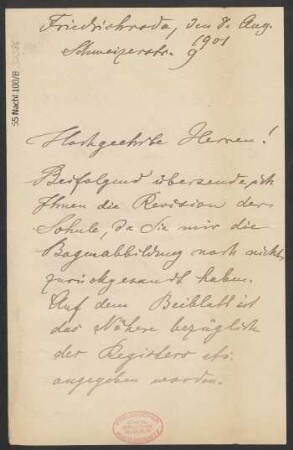 Friedrichroda, den 8. Aug.
1901
Schweizerstr. 9
55 Nachl 100/B
Hochgeehrte Herren!
Beifolgend übersende ich
Ihnen die Revision der
Schule, da Sie mir die
Bogenabbildung noch nicht
zurückgesandt haben.
Auf dem Beiblatt ist
das Nähere bezüglich
des Registers etc.
angegeben worden.